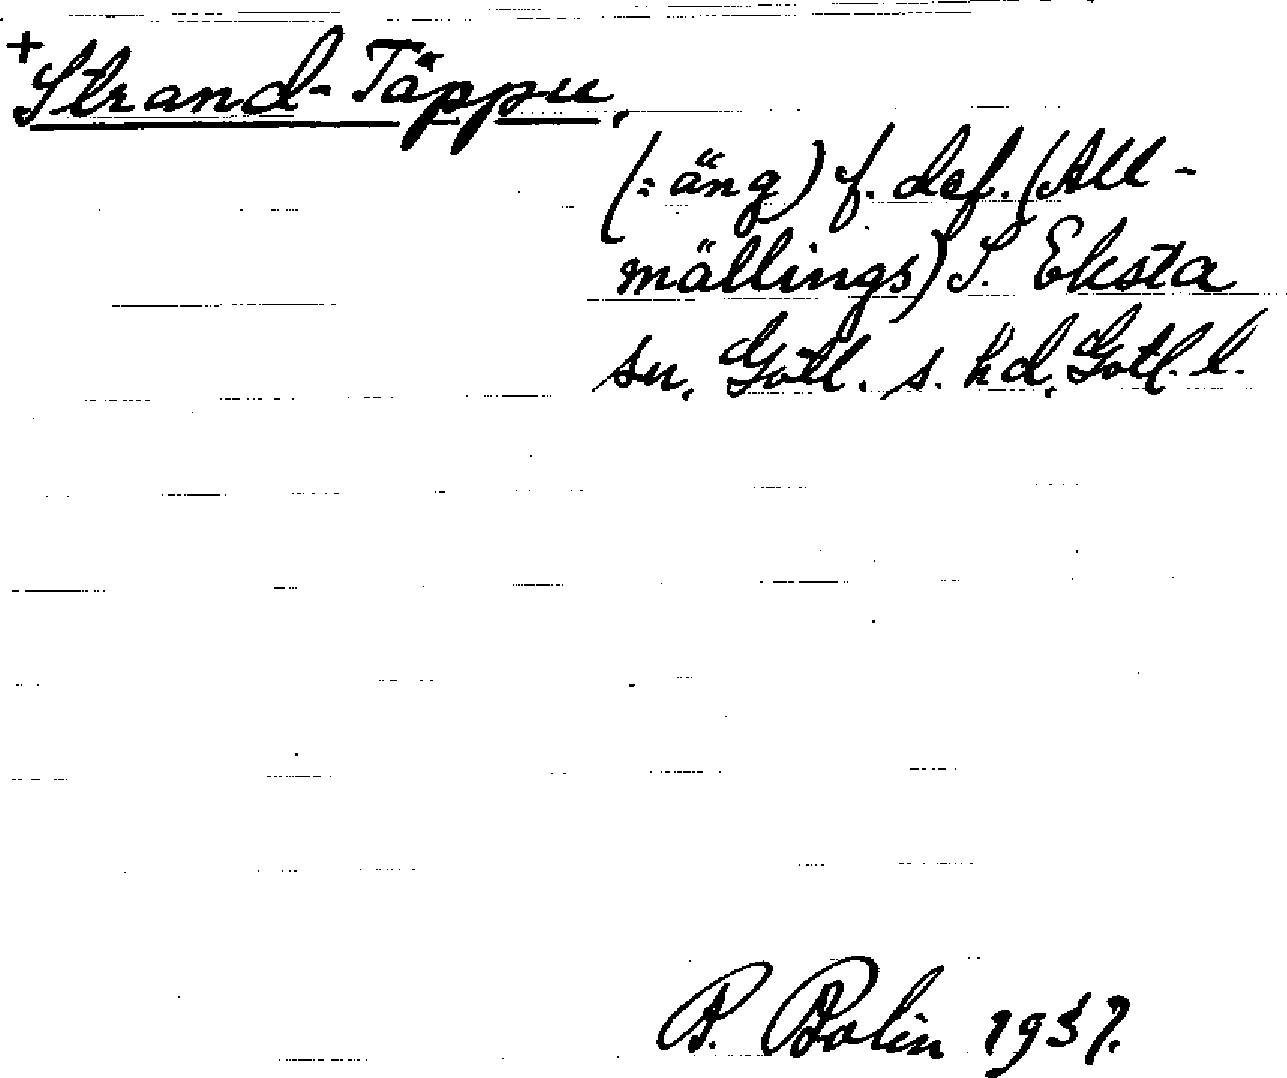 +
Strand-Täppu,
(= äng) f. def. (All-
mällings) S. Eksta
sn, Gotl. s. hd, Gotl. l.
P. Bolin 1937.